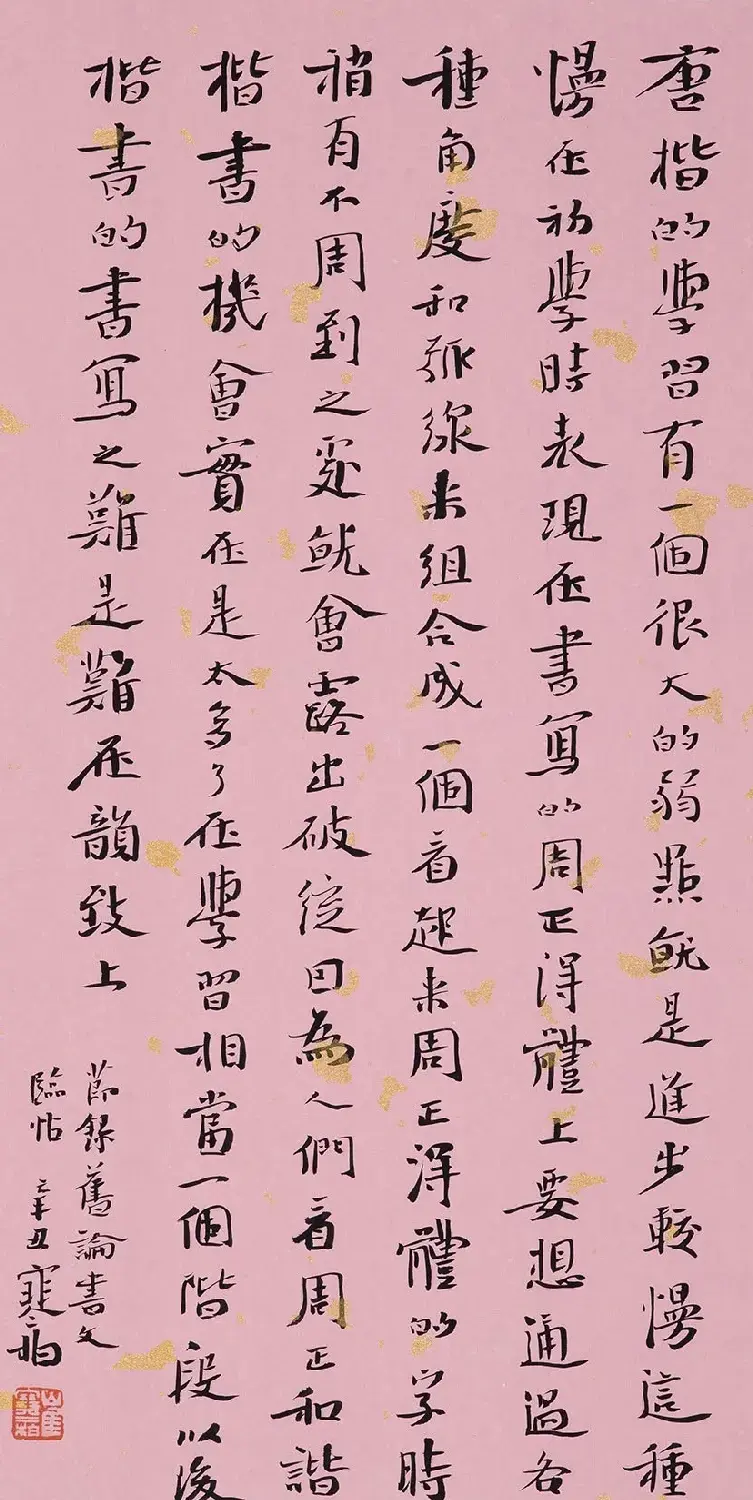 唐楷的學習有一個很大的弱點就是進步較慢這種
慢在初學時表現在書寫的周正得體上要想通過各
種角度和弧線来組合成一個看起来周正得體的字時
稍有不周到之處就會露出破綻因為人們看周正和諧
楷書的機會實在是太多了在學習相當一個階段以後
楷書的書寫之難是難在韻致上
節錄舊論書文
臨帖 辛丑寒柏
崔寒柏